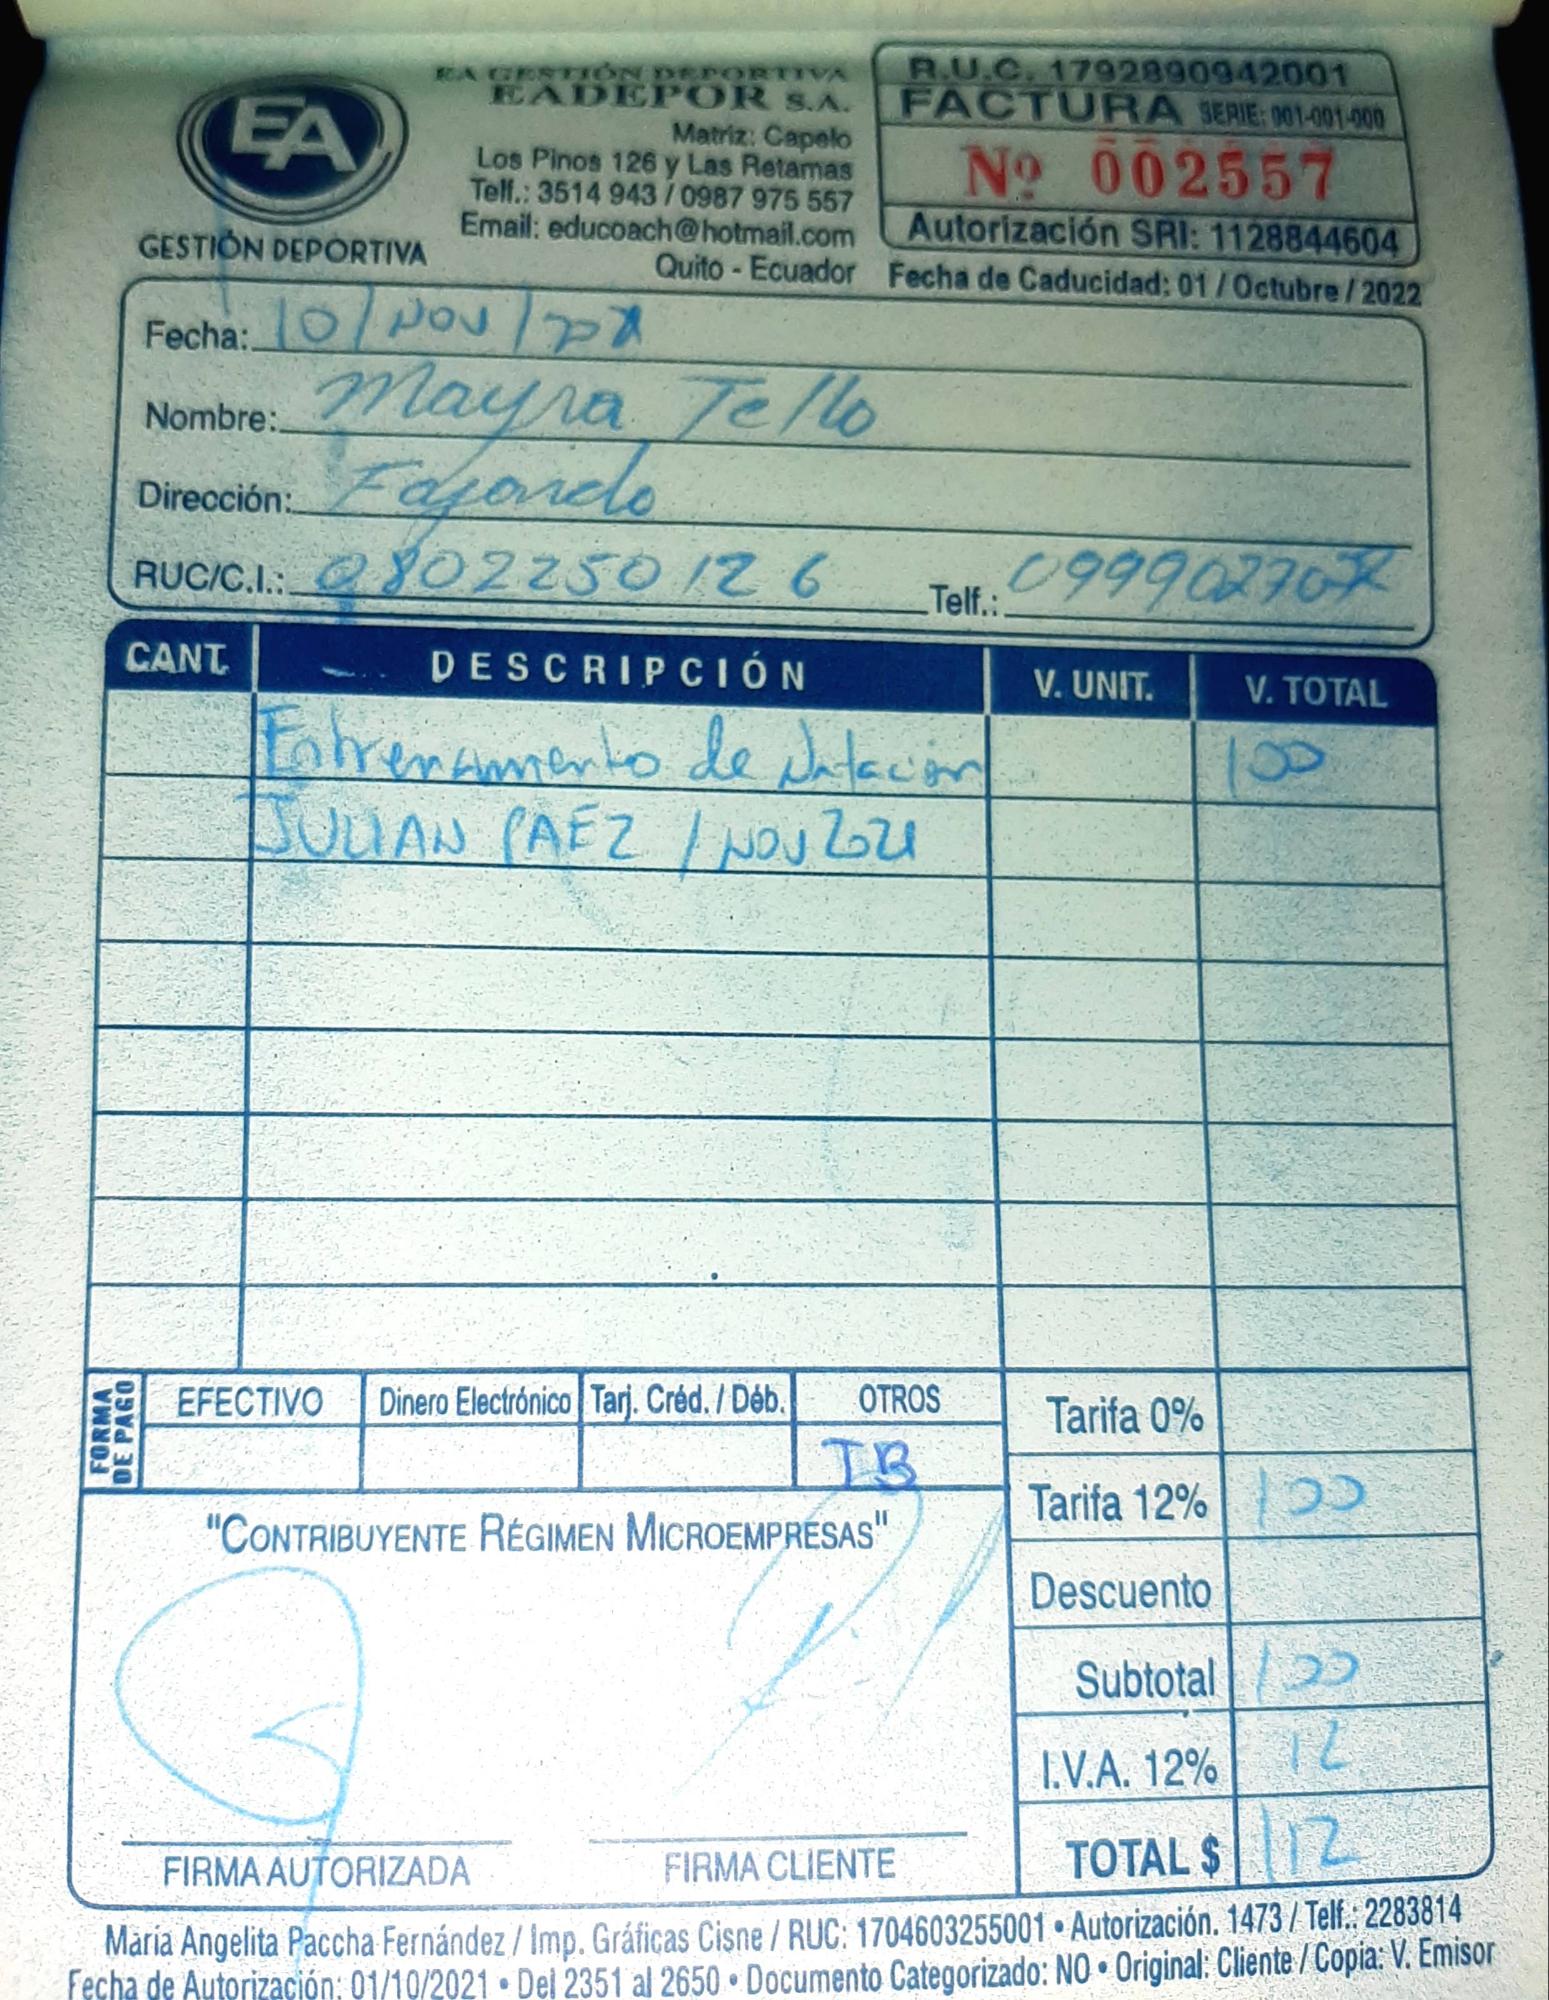 EA
GESTIÓN DEPORTIVA
EA GESTIÓN DEPORTIVA
EADEPOR S.A.
Matriz: Capelo
Los Pinos 126 y Las Retamas
Telf.: 3514 943 / 0987 975 557
Email: educoach@hotmail.com
Quito - Ecuador
R.U.C. 1792890942001
FACTURA SERIE: 001-001-000
Nº 002557
Autorización SRI: 1128844604
Fecha de Caducidad: 01 / Octubre / 2022
Fecha: 10/NOV/
Nombre: Mayra Tello
Dirección: Fajardo
RUC/C.I.: 0802250126 Telf.:
CANT. DESCRIPCIÓN V. UNIT. V. TOTAL
Entrenamiento de Natación 100
JULIAN PAEZ / NOV 2021
FORMA DE PAGO
EFECTIVO Dinero Electrónico Tarj. Créd. / Déb. OTROS
TB
Tarifa 0%
Tarifa 12% 100
"CONTRIBUYENTE RÉGIMEN MICROEMPRESAS"
Descuento
Subtotal 100
I.V.A. 12% 12
TOTAL $ 112
FIRMA AUTORIZADA FIRMA CLIENTE
María Angelita Paccha Fernández / Imp. Gráficas Cisne / RUC: 1704603255001 • Autorización. 1473 / Telf.: 2283814
Fecha de Autorización: 01/10/2021 • Del 2351 al 2650 • Documento Categorizado: NO • Original: Cliente / Copia: V. Emisor